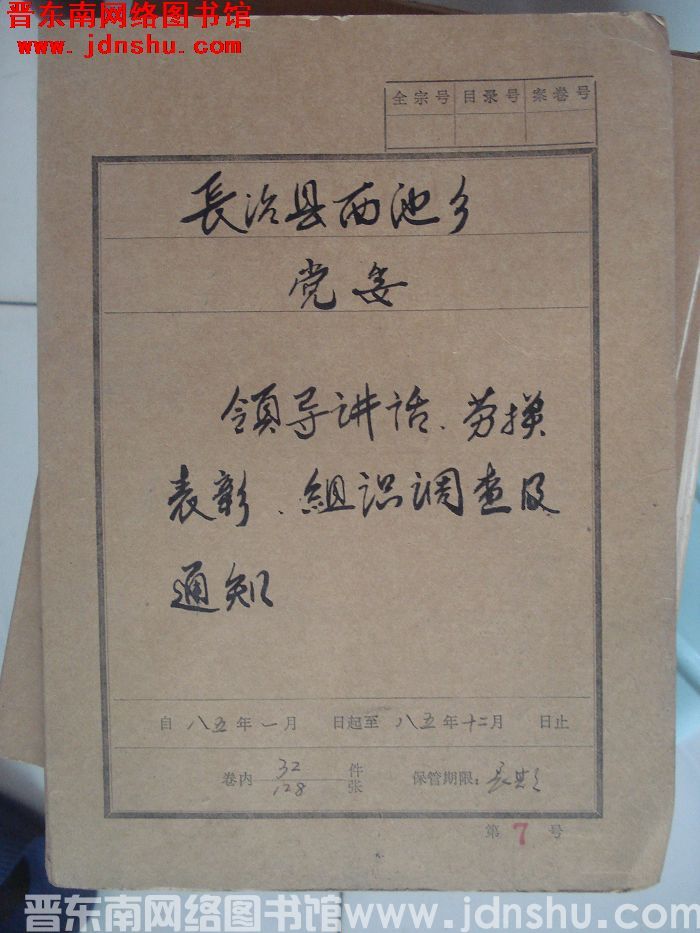 晋东南网络图书馆
www.jdnshu.com
全宗号 目录号 案卷号
長治县西池乡
党委
領导讲话、劳摸
表彰、組识调查及
通知
自八五年一月 日起至八五年十二月 日止
卷内 32 件
128 张
保管期限：長期
第 7 号
晋东南网络图书馆 www.jdnshu.com